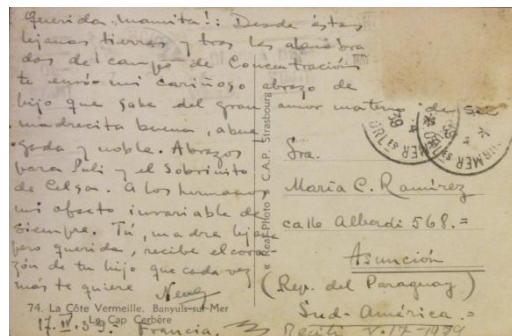 Querida mamita!: Desde éstas
lejanas tierras y tras las alambra
das del campo de Concentración
te envío mi cariñoso abrazo de
hijo que sabe del gran amor materno de su
madrecita buena, abne
gada y noble. Abrazos
para Poli y el Sobrinito
de Celga. A los hermanos
mi afecto invariable de
siempre. Tú, madre lejana
pero querida, recibe el cora
zón de tu hijo que cada vez
más te quiere
74. La Côte Vermeille. Banyuls-sur-Mer
Le Cap Cerbère
Francia.
"Real-Photo" C.A.P. Strasbourg
Sra.
María C. Ramírez
calle Alberdi 568.=
Asunción
(Rep. del Paraguay)
Sud-América.=